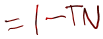 = 1 - TN